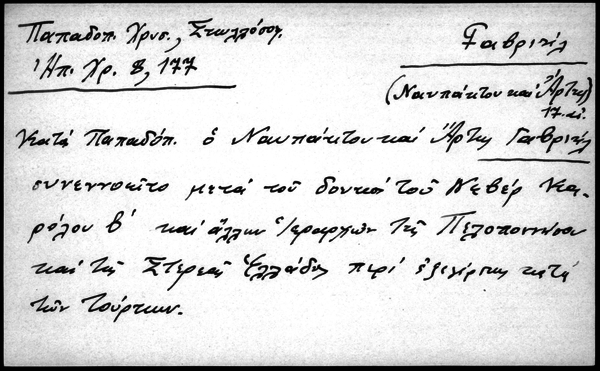 Παπαδοπ. Χρυσ.,
Ἠπ. Χρ. 8, 177
Γαβριήλ
(Ναυπάκτου καὶ Ἄρτης)
17. αἰ.
Κατὰ Παπαδόπ. ὁ Ναυπάκτου καὶ Ἄρτης Γαβριήλ
συνεννοεῖτο μετὰ τοῦ δουκὸς τοῦ Νεβέρ Κα-
ρόλου β' καὶ ἄλλων Ἱεραρχῶν τῆς Πελοποννήσου
καὶ τῆς Στερεᾶς Ἑλλάδος περὶ ἐξεγέρσεως κατὰ
τῶν Τούρκων.